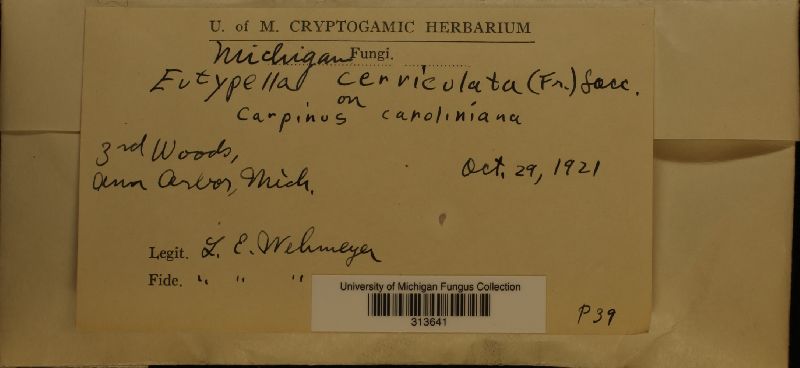 U. of M. CRYPTOGAMIC HERBARIUM
Michigan Fungi.
Eutypella cerviculata (Fr.) Sacc.
on
Carpinus caroliniana
3rd Woods,
Ann Arbor, Mich.
Oct. 29, 1921
Legit. L. E. Wehmeyer
Fide. " " "
University of Michigan Fungus Collection
313641
P39